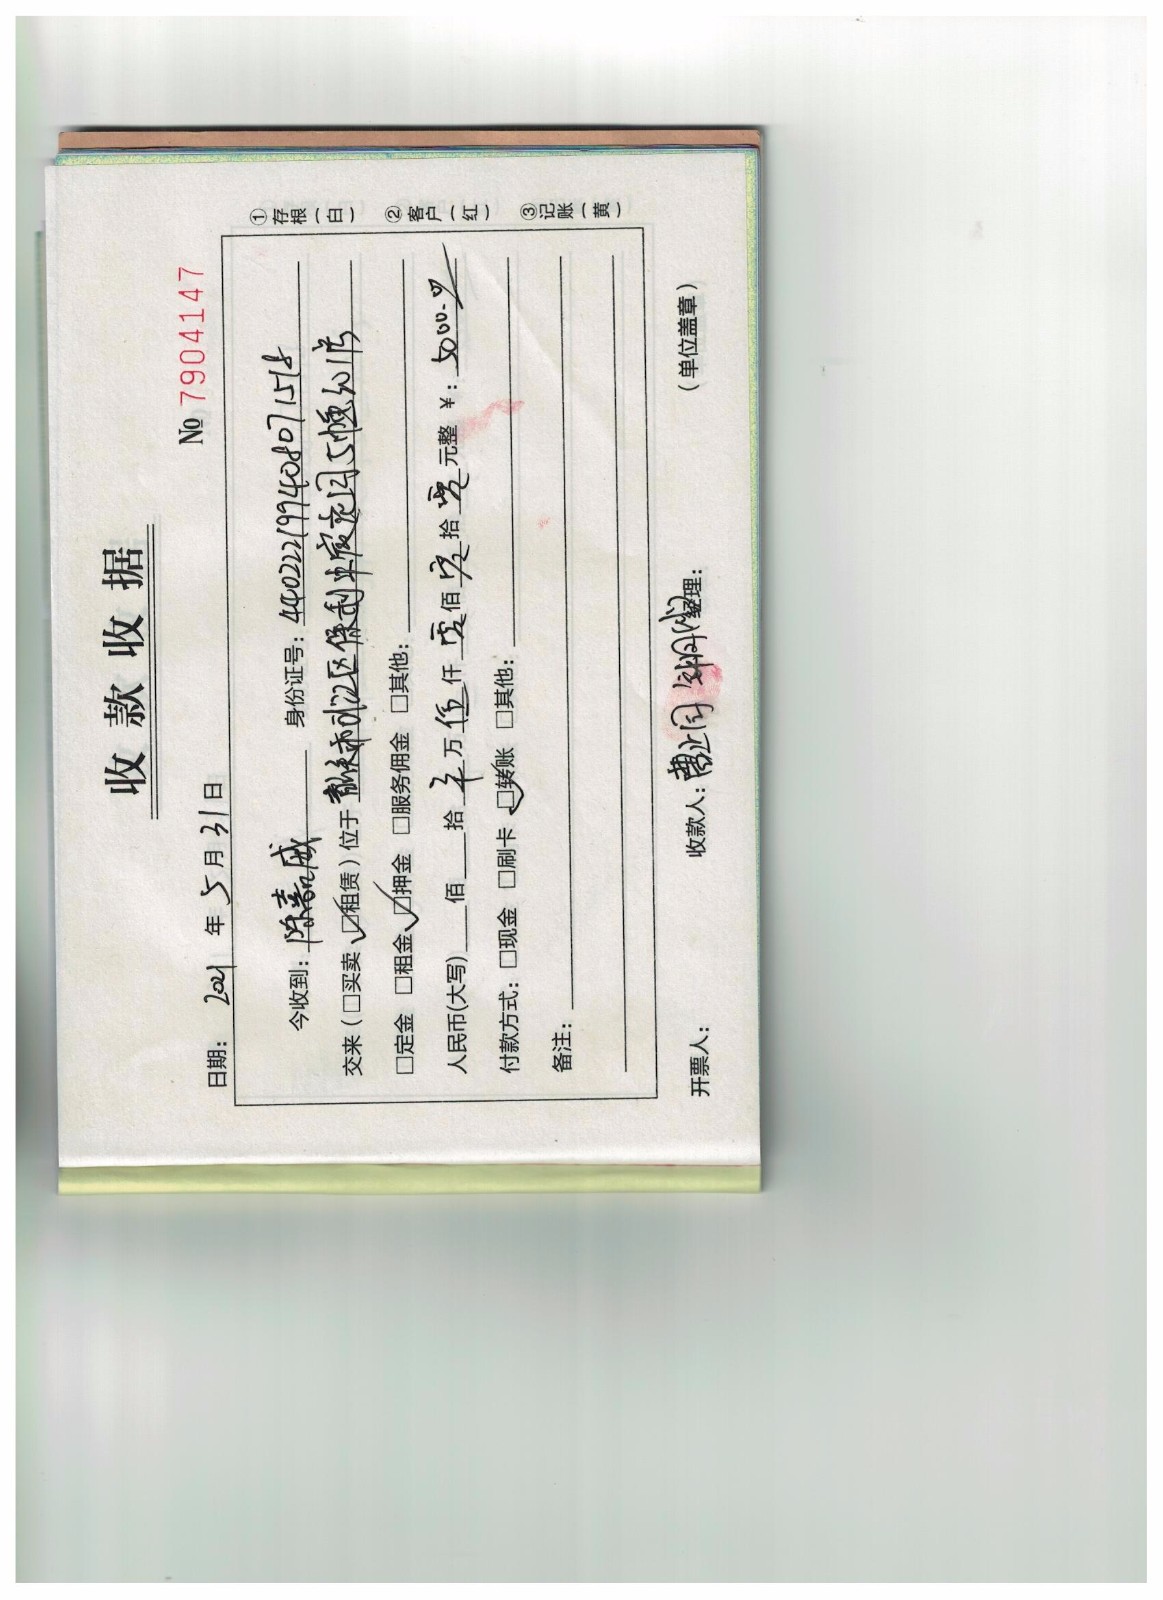 收款收据
No 7904147
日期: 2021 年 5 月 31 日
今收到: 陈嘉威 身份证号: 440222199408071518
交来 (□买卖 ☑租赁) 位于 韶关市浈江区保利中宸花园5幢501房
□定金 □租金 ☑押金 □服务佣金 □其他:
人民币(大写) 佰 拾 零 万 伍 仟 零 佰 零 拾 零 元整 ¥: 5000.00
付款方式: □现金 □刷卡 ☑转账 □其他:
备注:
开票人: 收款人: 经理: (单位盖章)
①存根(白) ②客户(红) ③记账(黄)